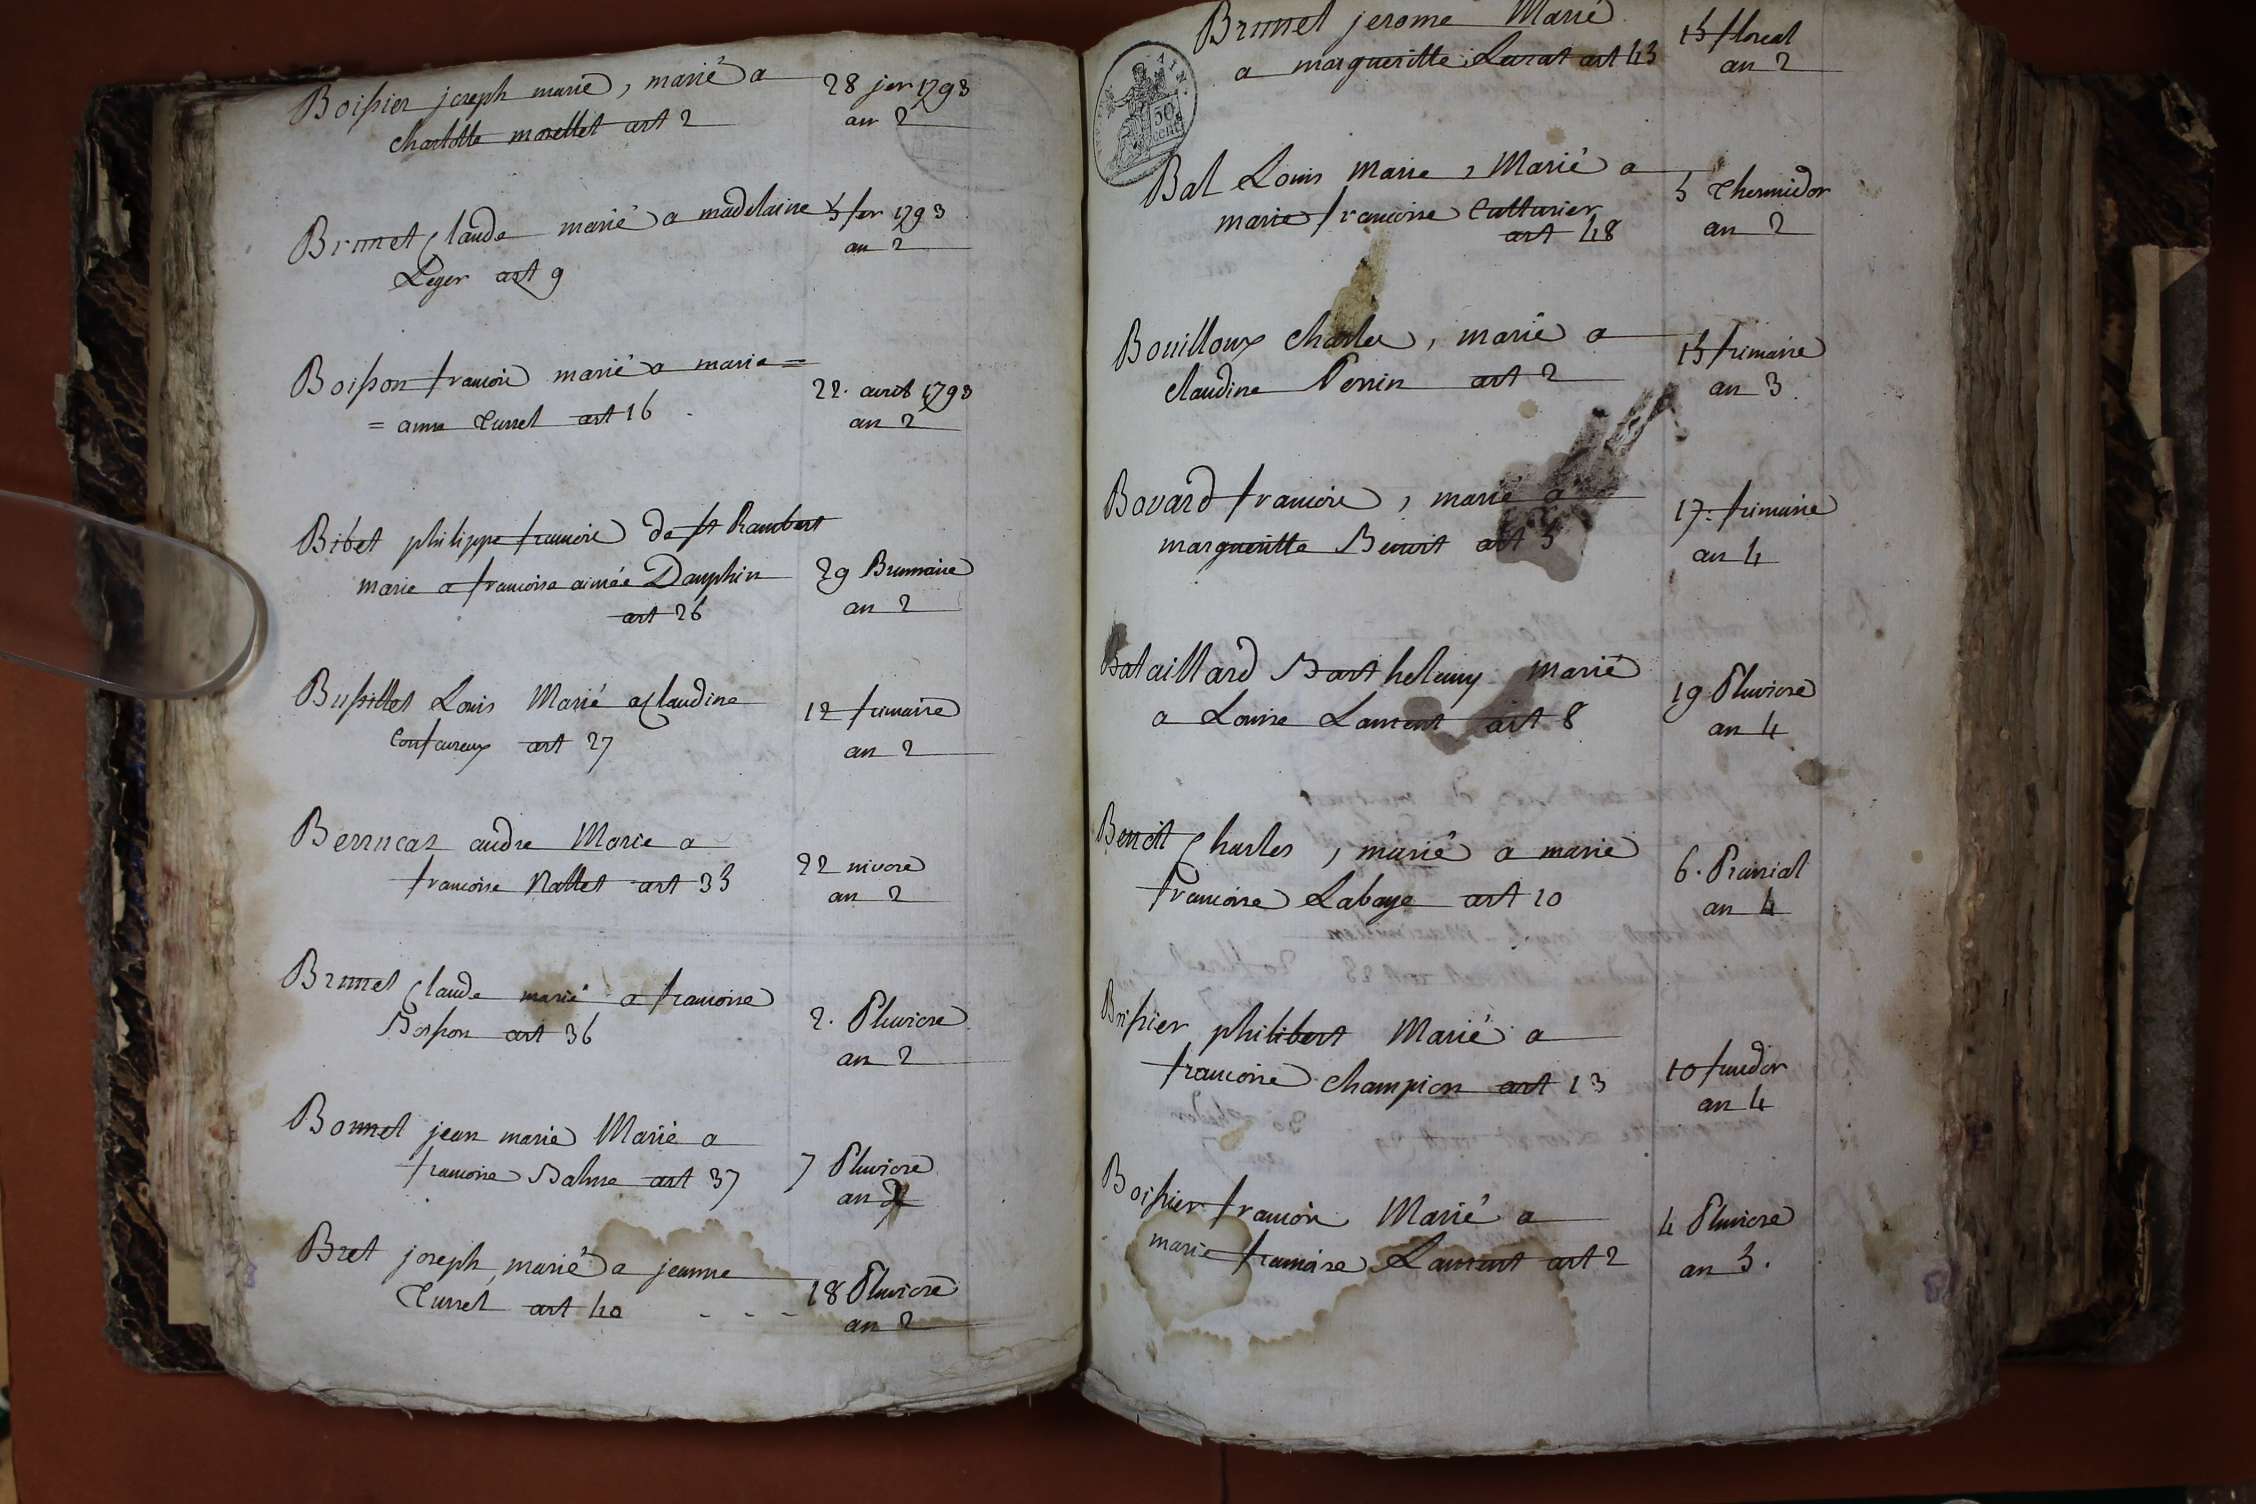 Boissier joseph marie, marié a
charlotte morellet art 2
28 jer 1793
an 2
Brunet Claude marié a madelaine
Leger art 9
5 fer 1793
an 2
Boisson francois marié a marie =
= anne Turrel art 16
22. avril 1793
an 2
Bibet philippe francois de st Rambert
marie a francoise aimée Dauphin
art 26
29 Brumaire
an 2
Bussillet Louis Marié a Claudine
art 27
12 frimaire
an 2
Berrucaz andre Marie a
francoise Nallet art 33
22 nivose
an 2
Brunet Claude marié a francoise
Bosson art 36
2. Pluviose
an 2
Bonnet jean marie Marié a
francoise Balme art 37
7 Pluviose
an 2
Bret joseph, marié a jeanne
Turrel art 40 - - -
18 Pluviose
an 2
Brunet jerome Marié
a margueritte art 43
15 floreal
an 2
50
cent
Bal Louis Marie, Marié a
marie francoise Cutturier
art 48
5 Thermidor
an 2
Bouilloux Charles, marié a
claudine Perrin art 2
15 frimaire
an 3
Bovard francois, marié a
margueritte Benoit art 5
17. frimaire
an 4
Bataillard Barthelemy marié
a Louise Laurent art 8
19 Pluviose
an 4
Benoit Charles, marié a marie
francoise Labaye art 10
6. Prairial
an 4
philibert Marié a
francoise Champion art 13
10 frucdor
an 4
Boissier francois Marié a
marie francoise Laurent art 2
4 Pluviose
an 5.